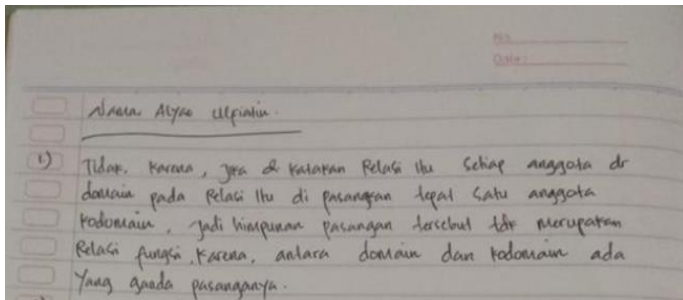 No:
Date:
Nama Alyaa Ulpiatin.
1) Tidak. Karena, jika di katakan Relasi itu setiap anggota dr
domain pada Relasi itu di pasangkan tepat satu anggota
kodomain, jadi himpunan pasangan tersebut tdk merupakan
Relasi fungsi. Karena, antara domain dan kodomain ada
Yang ganda pasanganya.